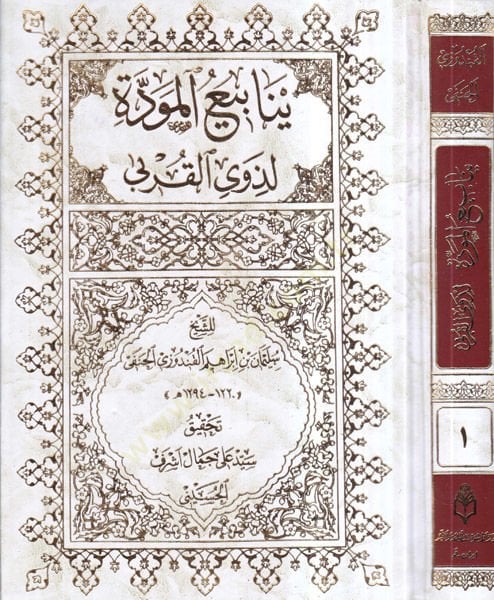 ينابيع المودّة
لذوي القربى
للشيخ
سليمان بن إبراهيم القندوزي الحنفي
«١٢٢٠-١٢٩٤هـ»
تحقيق
سيد علي جمال أشرف
الحسيني
القندوزي
الحنفي
ينابيع المودّة لذوي القربى
١